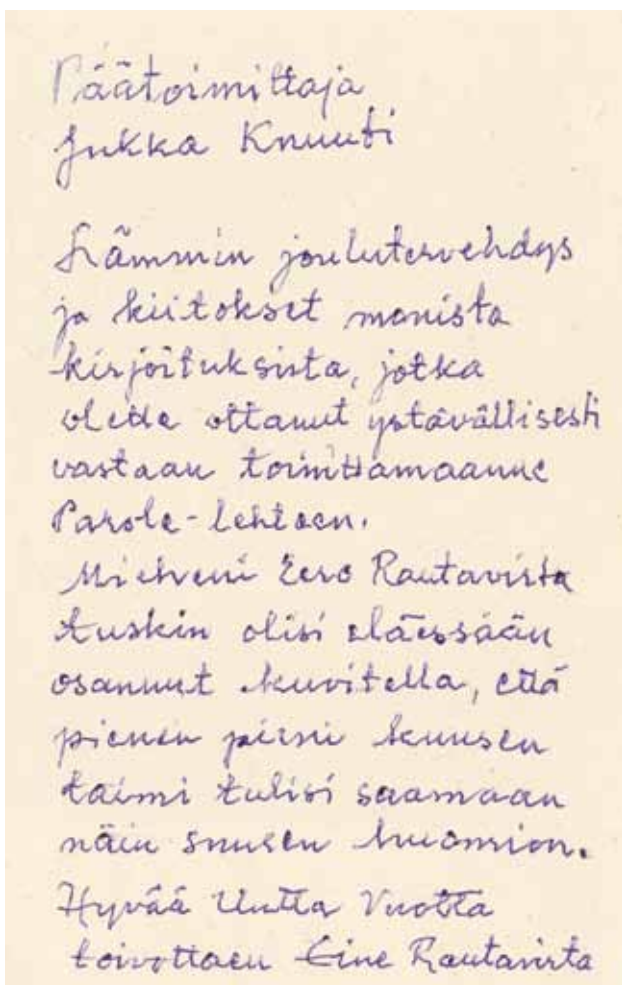 Päätoimittaja
Jukka Knuuti
Lämmin joulutervehdys
ja kiitokset monista
kirjoituksista, jotka
olette ottanut ystävällisesti
vastaan toimittamaanne
Parole-lehteen.
Mieheni Eero Rautavirta
tuskin olisi eläessään
osannut kuvitella, että
pienen pieni kuusen
taimi tulisi saamaan
näin suuren huomion.
Hyvää Uutta Vuotta
toivottaen Eine Rautavirta